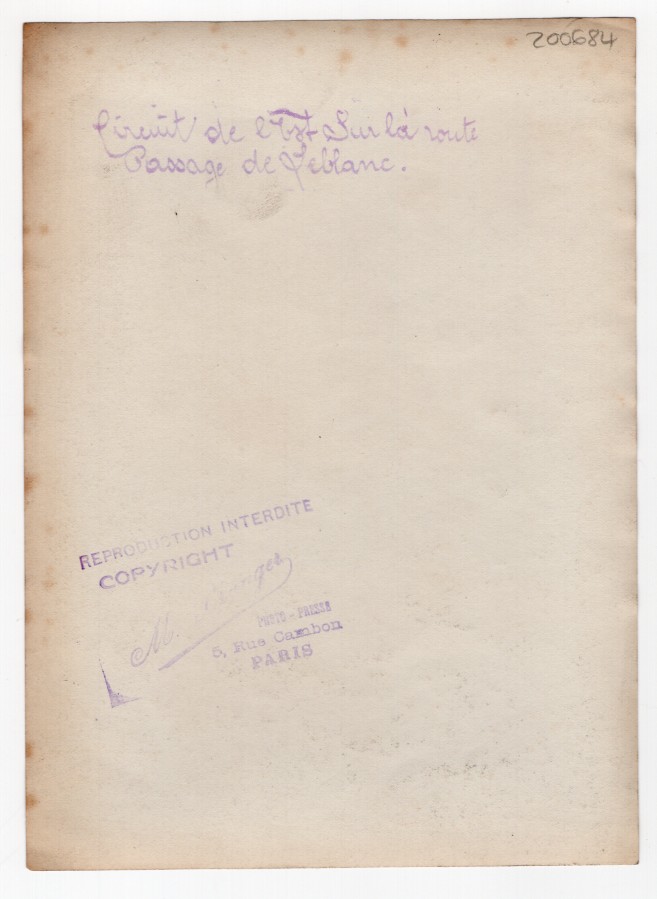 200684
Circuit de l'Est Sur la route
Passage de Leblanc.
REPRODUCTION INTERDITE
COPYRIGHT
M.
PHOTO - PRESSE
5, Rue Cambon
PARIS